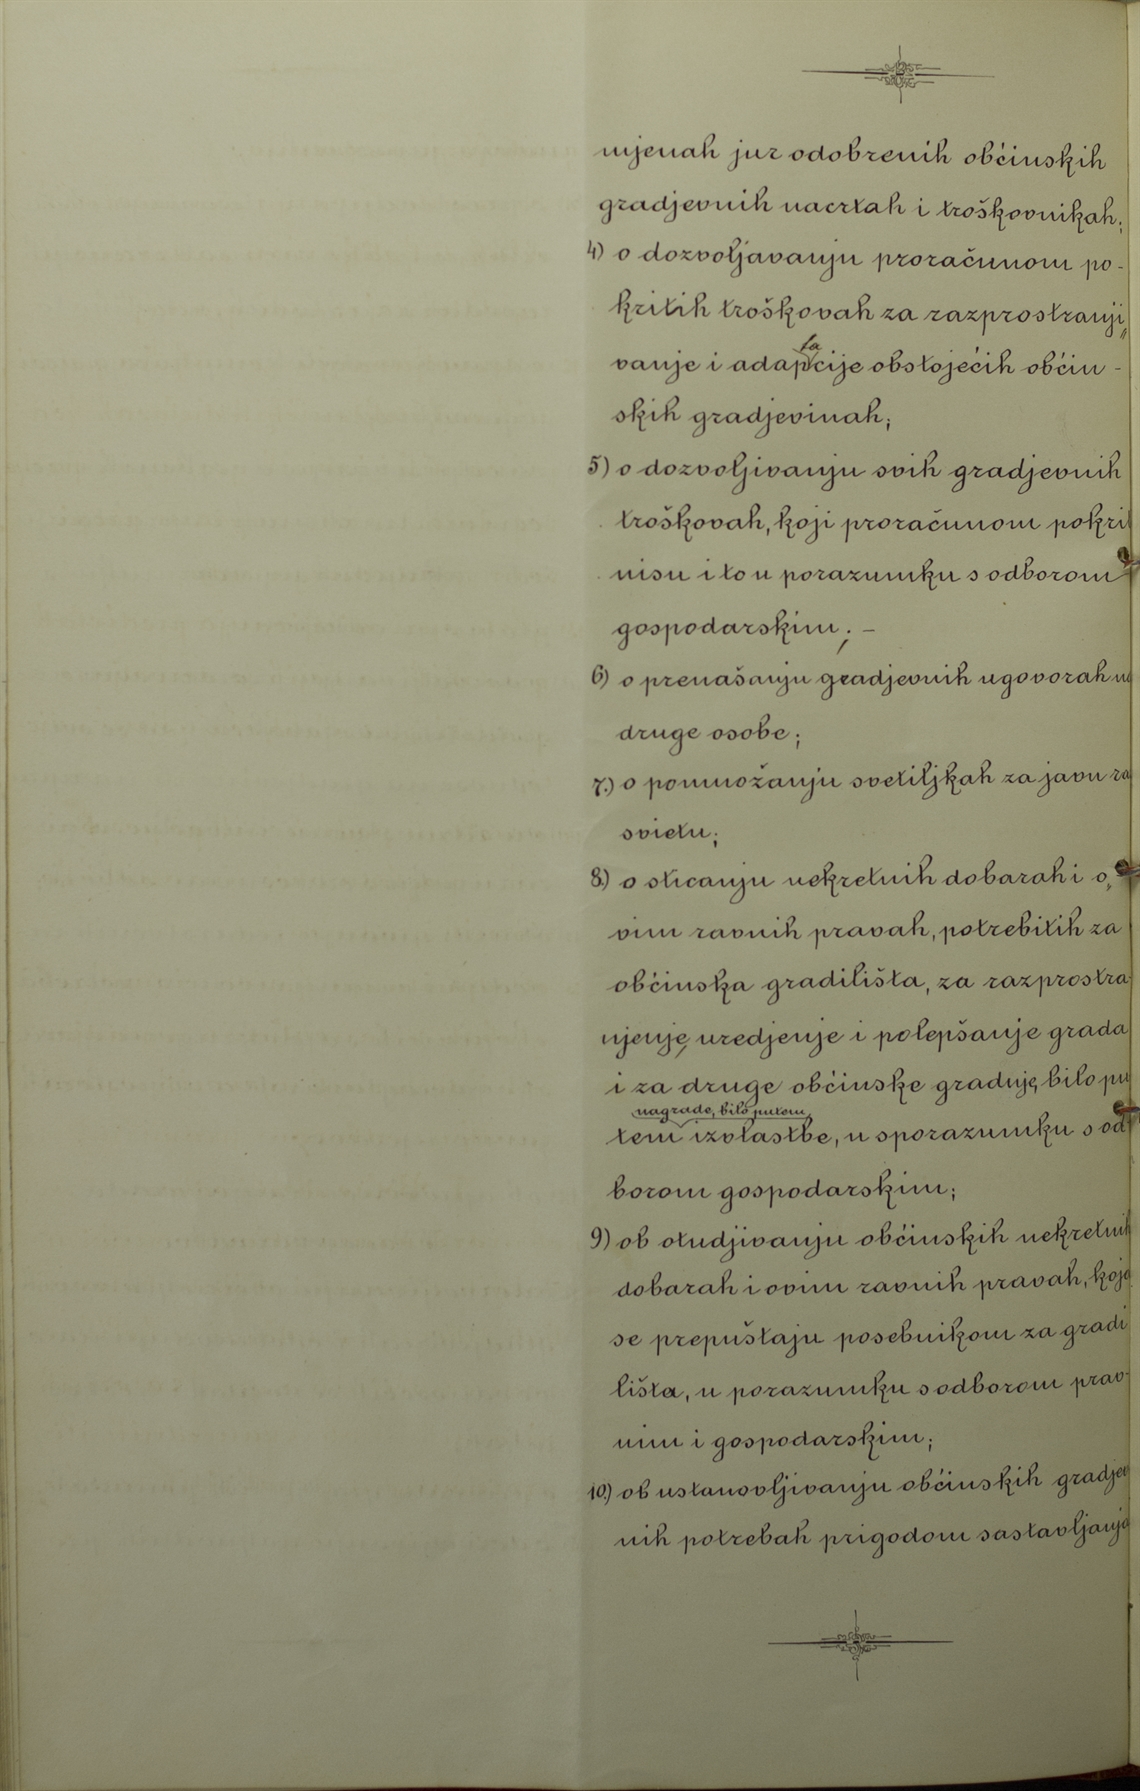 mjenah jur odobrenih občinskih
gradjevnih nacrtah i troškovnikah;
4) o dozvoljavanju proračunom po-
kritih troškovah za razprostranji„
vanje i adaptacije obstojećih občin-
skih gradjevinah;
5) o dozvoljivanju svih gradjevnih
troškovah, koji proračunom pokri
nisu i to u porazumku s odborom
gospodarskim; –
6) o prenašanju gradjevnih ugovorah na
druge osobe;
7.) o pomnožanju svetiljkah za javnu ra
svietu;
8) o sticanju nekretnih dobarah i o„
vim ravnih pravah, potrebitih za
občinska gradilišta, za razprostra-
njenje, uredjenje i polepšanje grada
i za druge občinske gradnje, bilo pu
tem nagrade, bilo putem izvlastbe, u sporazumku s od
borom gospodarskim;
9) ob otudjivanju občinskih nekretnih
dobarah i ovim ravnih pravah, koja
se prepuštaju posebnikom za gradi
lišta, u porazumku s odborom prav-
nim i gospodarskim;
10.) ob ustanovljivanju občinskih gradjev
nih potrebah prigodom sastavljanja